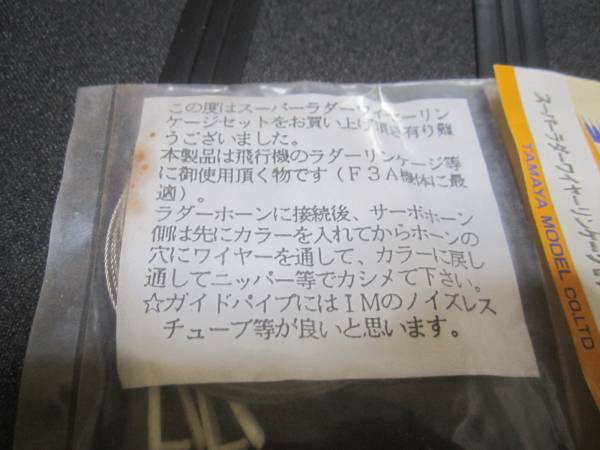 この度はスーパーラダーワイヤーリン
ケージセットをお買い上げ頂き有り難
うございました。
本製品は飛行機のラダーリンケージ等
に御使用頂く物です（F3A機体に最
適）。
ラダーホーンに接続後、サーボホーン
側は先にカラーを入れてからホーンの
穴にワイヤーを通して、カラーに戻し
通してニッパー等でカシメて下さい。
☆ガイドパイプにはIMのノイズレス
チューブ等が良いと思います。
スーパーラダーワイヤーリンケージ
TAMAYA MODEL CO.LTD